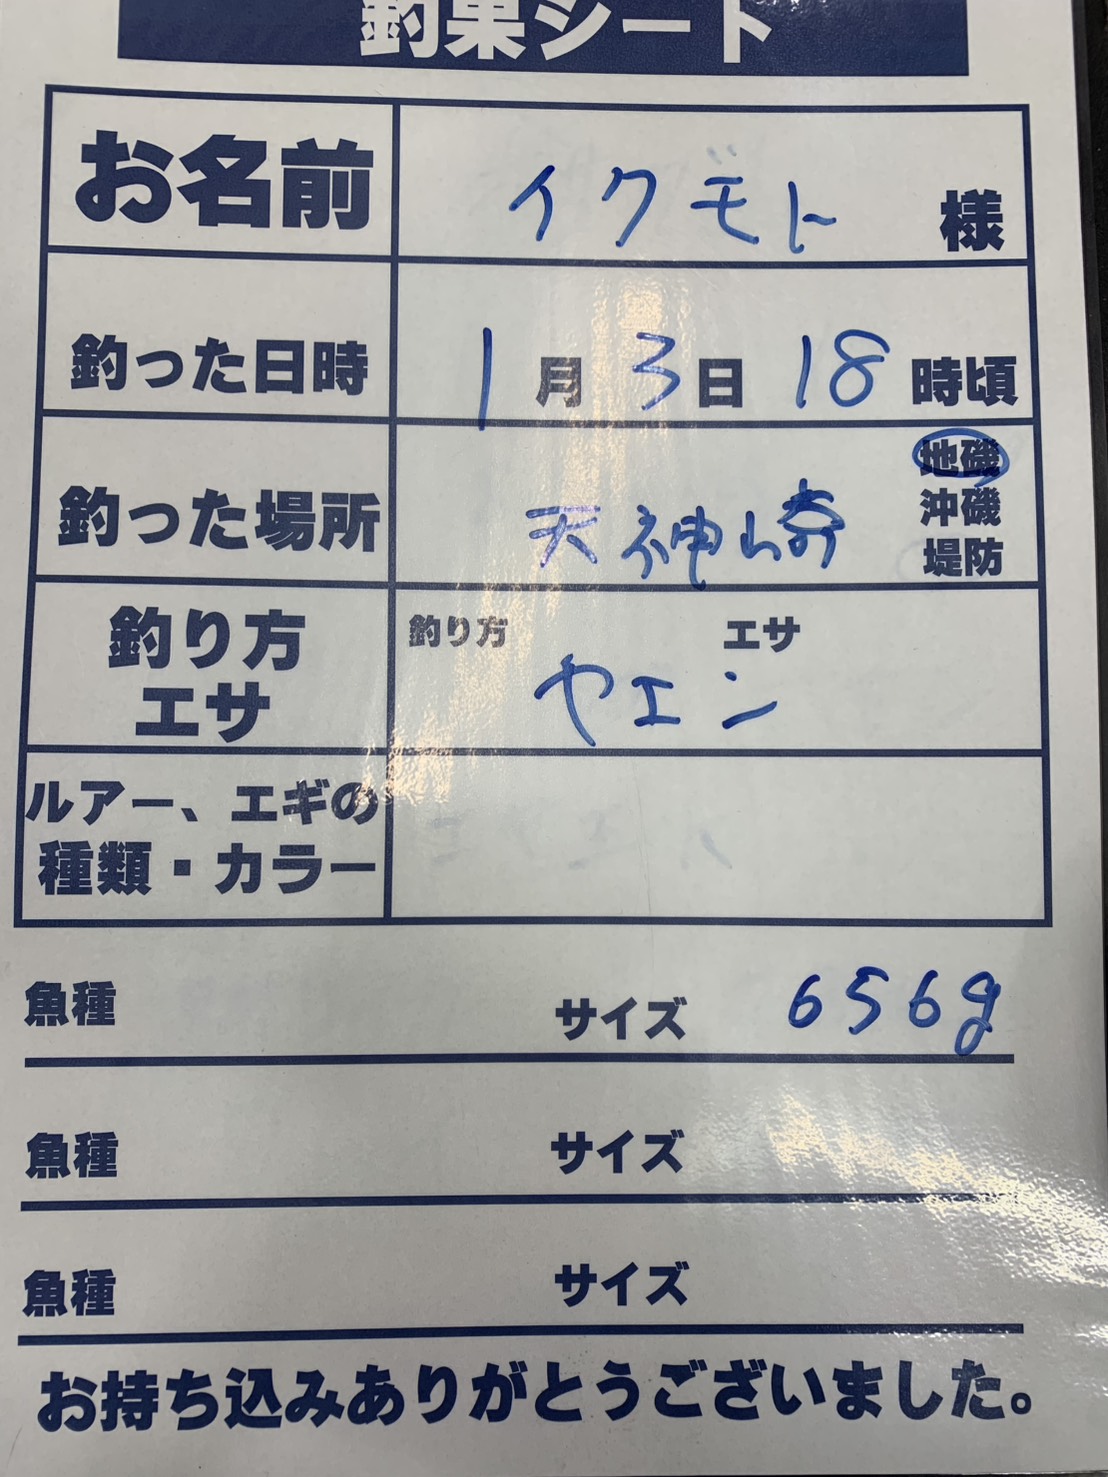 釣果シート
お名前 イクモト 様
釣った日時 1月3日18時頃
釣った場所 天神崎 地磯
沖磯
堤防
釣り方
エサ
釣り方 エサ
ヤエン
ルアー、エギの
種類・カラー
魚種 サイズ 656g
魚種 サイズ
魚種 サイズ
お持ち込みありがとうございました。